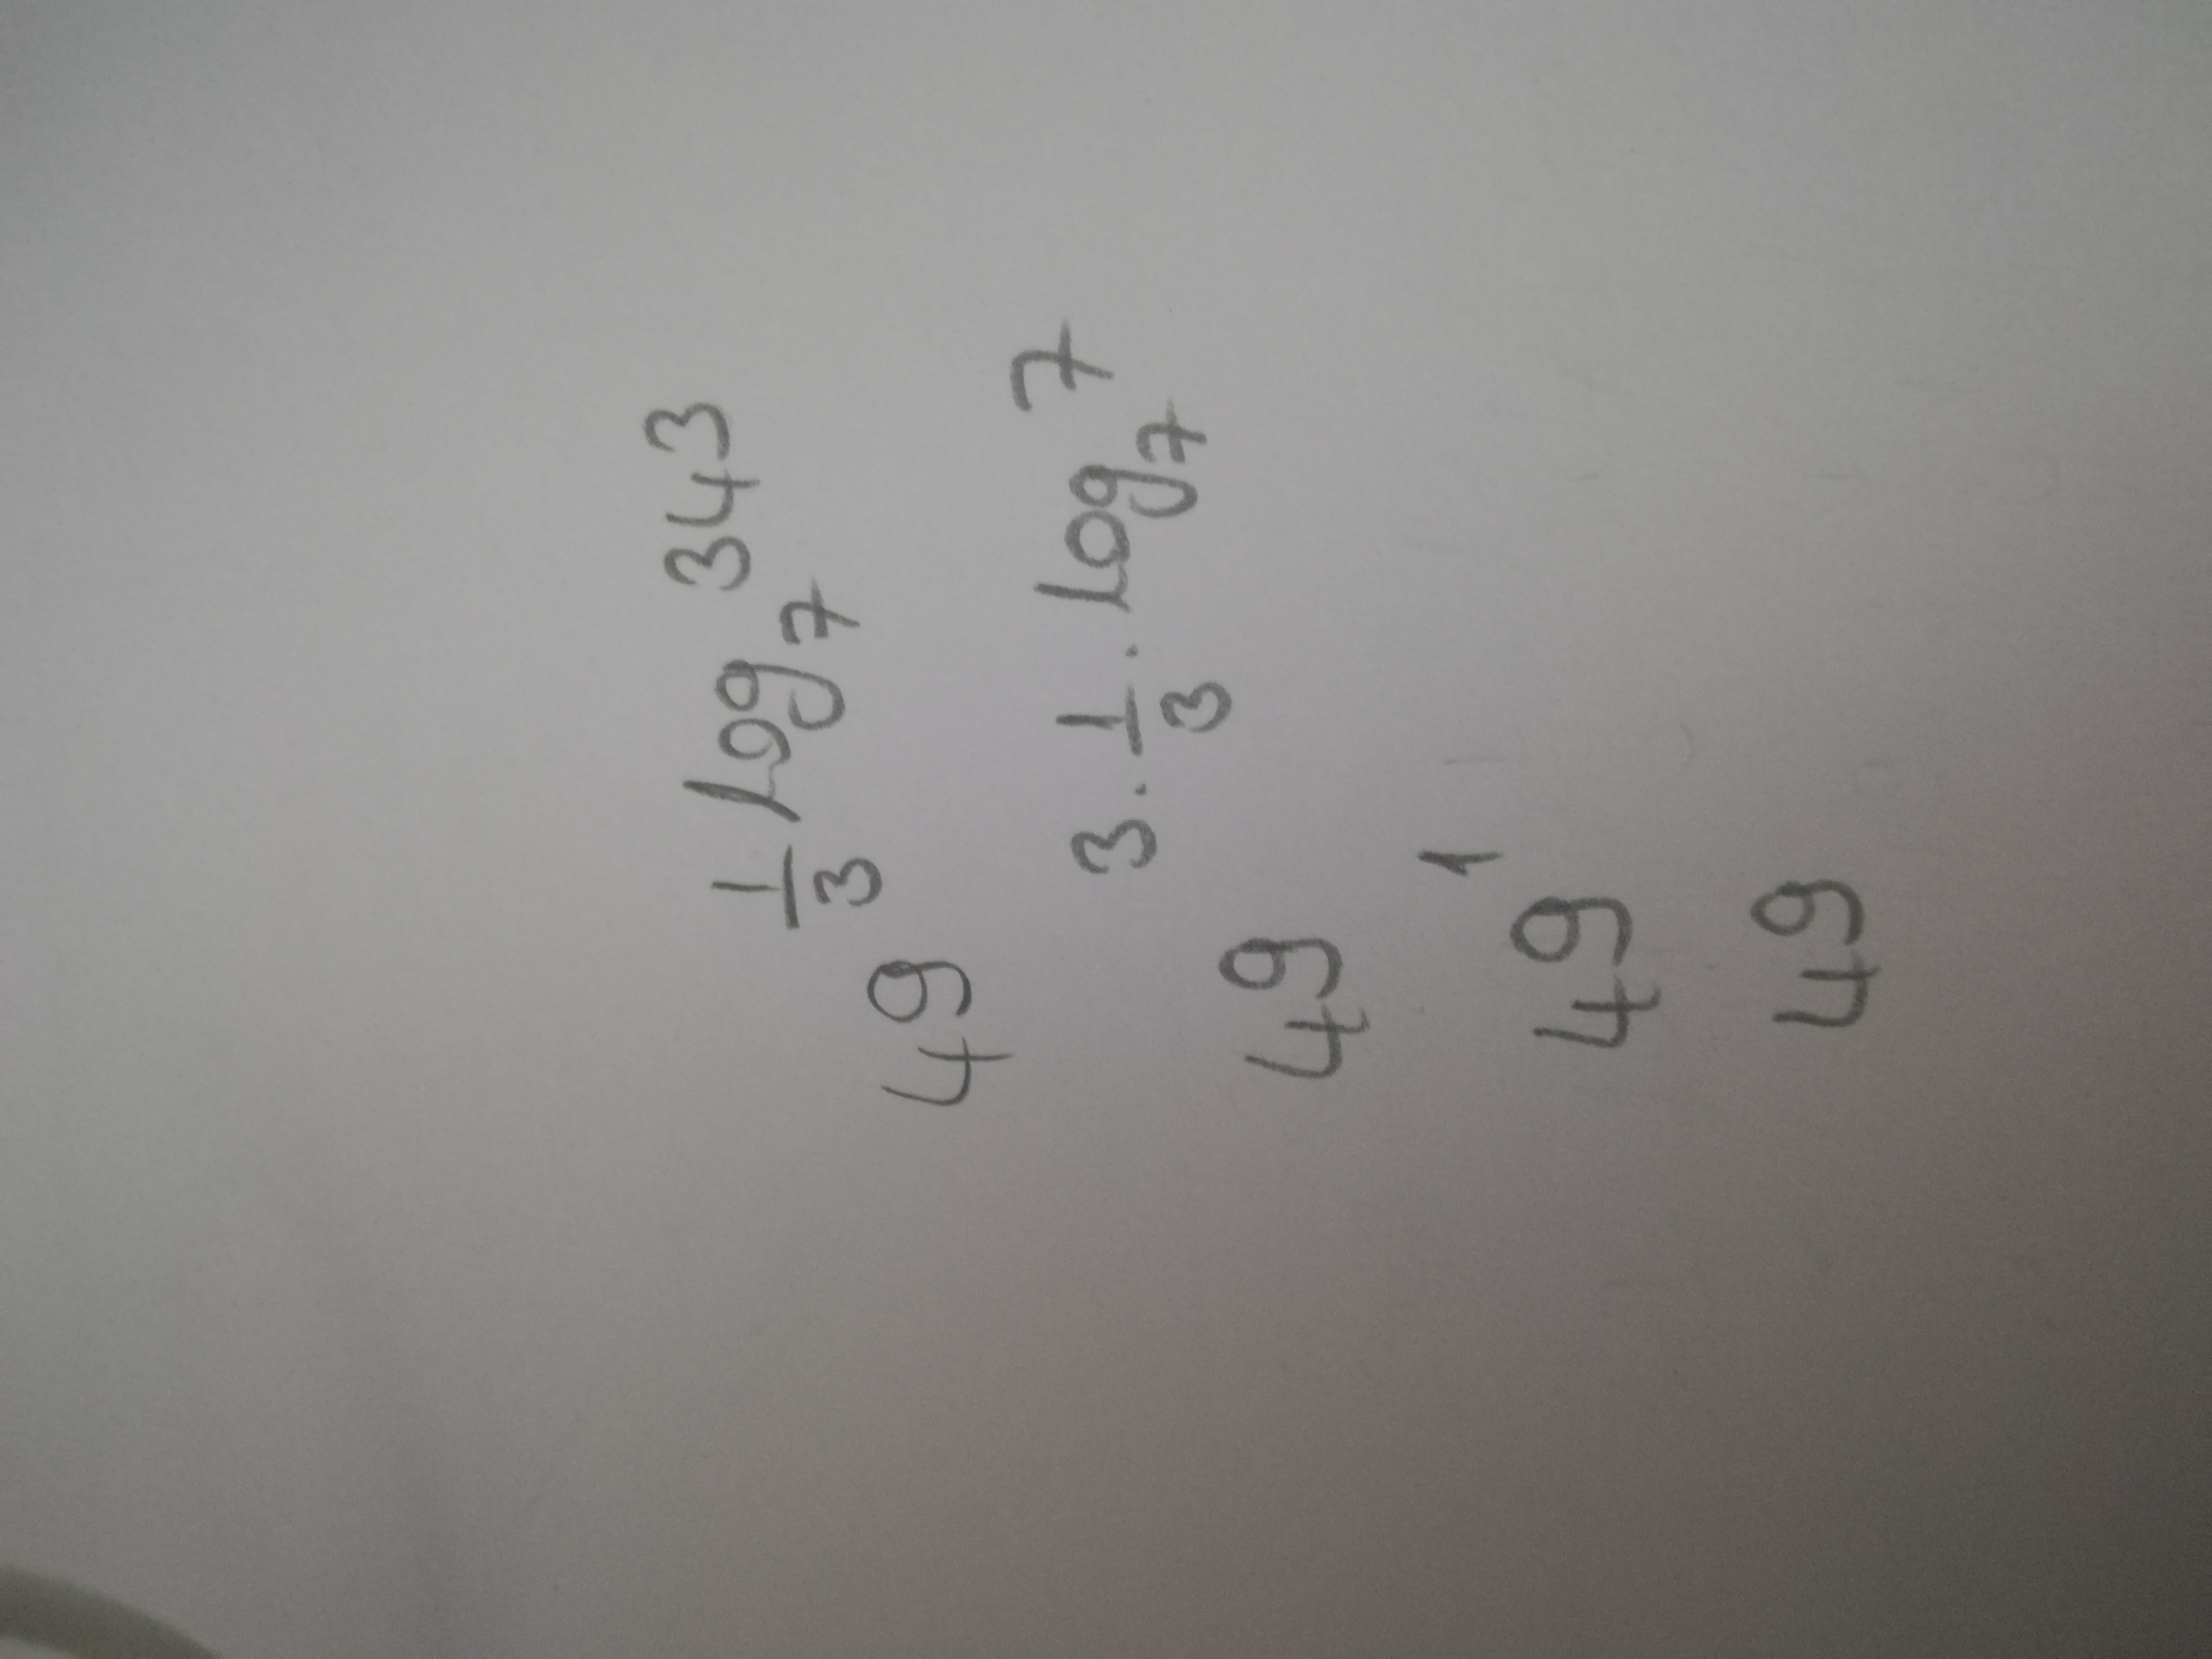 49^{\frac{1}{3} \log_7 343}
49^{3 \cdot \frac{1}{3} \cdot \log_7 7}
49^1
49